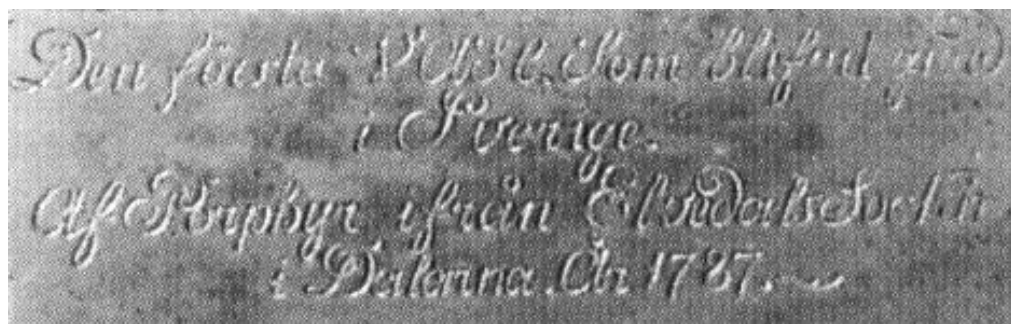 Den förste VASE. Som blifvit giord
i Sverige.
Af Porphyr ifrån Elfvdals Sockn
i Dalerna. Åhr 1787.